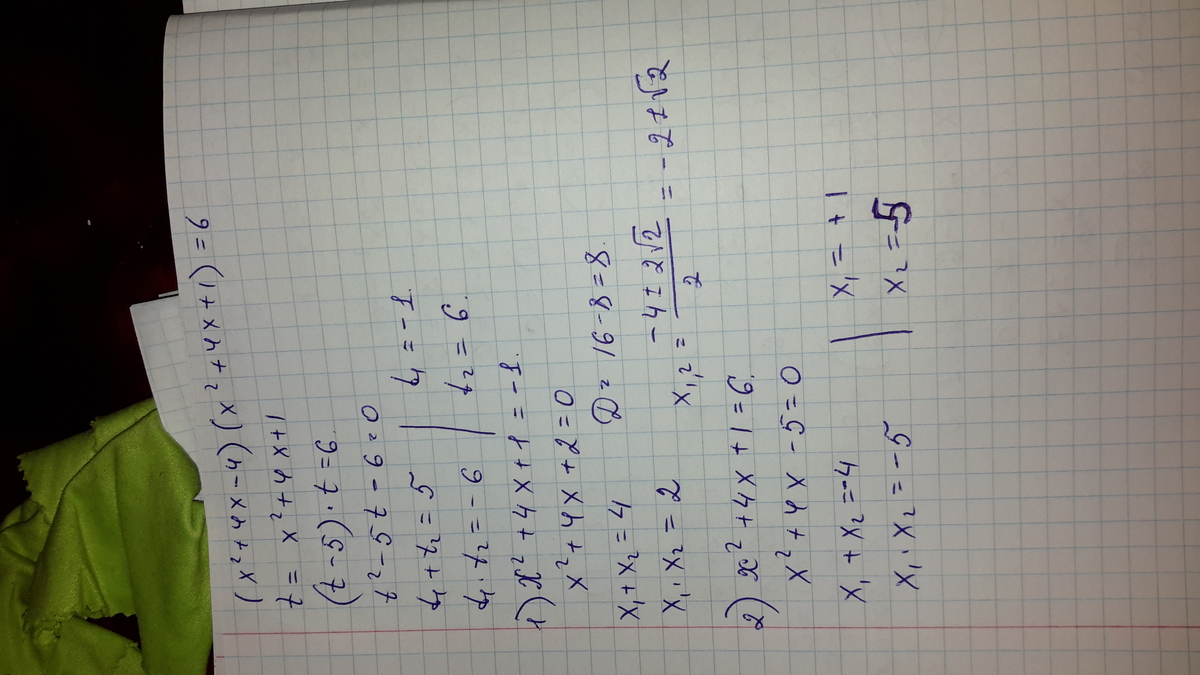 (x² + 4x - 4)(x² + 4x + 1) = 6
t = x² + 4x + 1
(t - 5) · t = 6.
t² - 5t - 6 = 0
t₁ + t₂ = 5 | t₁ = -1.
t₁ · t₂ = -6 | t₂ = 6.
1) x² + 4x + 1 = -1.
x² + 4x + 2 = 0
x₁ + x₂ = 4 D = 16 - 8 = 8.
x₁ · x₂ = 2 x₁,₂ = (-4 ± 2√2)/2 = -2 ± √2
2) x² + 4x + 1 = 6.
x² + 4x - 5 = 0
x₁ + x₂ = -4 | x₁ = +1
x₁ · x₂ = -5 | x₂ = -5